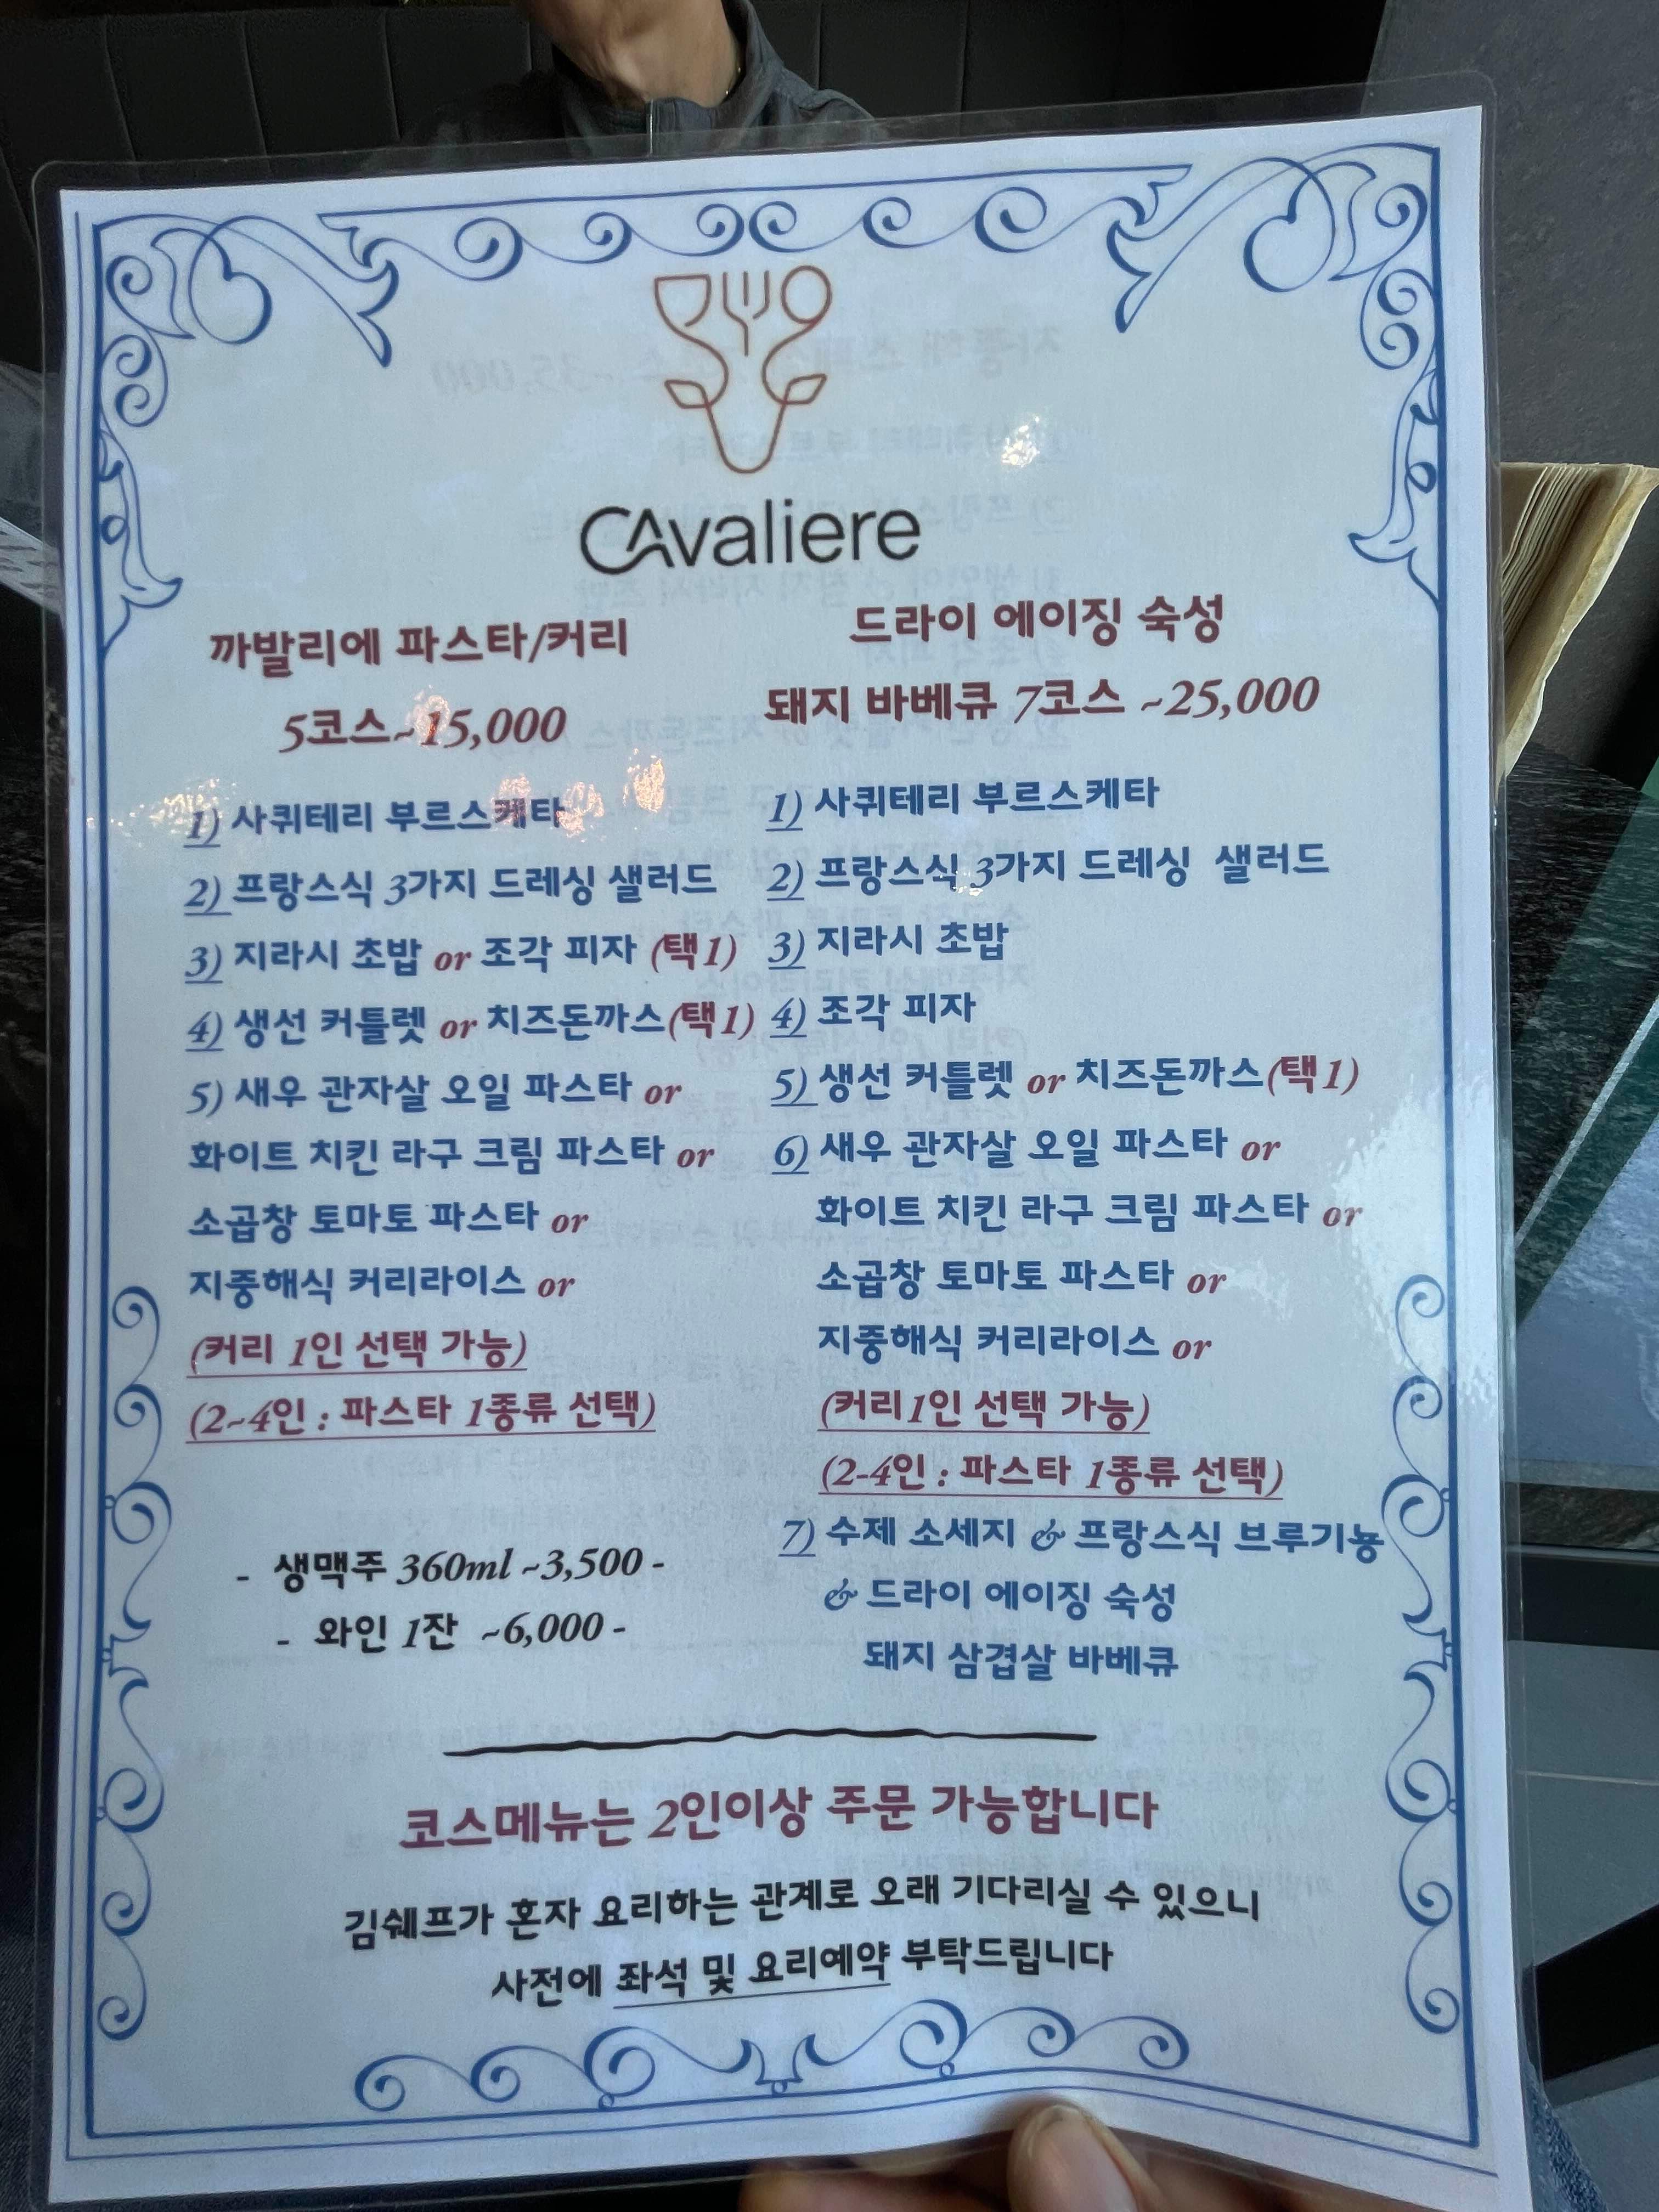 CAvaliere
까발리에 파스타/커리
5코스~15,000
1) 사퀴테리 부르스케타
2) 프랑스식 3가지 드레싱 샐러드
3) 지라시 초밥 or 조각 피자 (택1)
4) 생선 커틀렛 or 치즈돈까스(택1)
5) 새우 관자살 오일 파스타 or
화이트 치킨 라구 크림 파스타 or
소곱창 토마토 파스타 or
지중해식 커리라이스 or
(커리 1인 선택 가능)
(2~4인 : 파스타 1종류 선택)
- 생맥주 360ml ~3,500 -
- 와인 1잔 ~6,000 -
드라이 에이징 숙성
돼지 바베큐 7코스 ~25,000
1) 사퀴테리 부르스케타
2) 프랑스식 3가지 드레싱 샐러드
3) 지라시 초밥
4) 조각 피자
5) 생선 커틀렛 or 치즈돈까스(택1)
6) 새우 관자살 오일 파스타 or
화이트 치킨 라구 크림 파스타 or
소곱창 토마토 파스타 or
지중해식 커리라이스 or
(커리1인 선택 가능)
(2-4인 : 파스타 1종류 선택)
7) 수제 소세지 & 프랑스식 브루기뇽
& 드라이 에이징 숙성
돼지 삼겹살 바베큐
코스메뉴는 2인이상 주문 가능합니다
김쉐프가 혼자 요리하는 관계로 오래 기다리실 수 있으니
사전에 좌석 및 요리예약 부탁드립니다